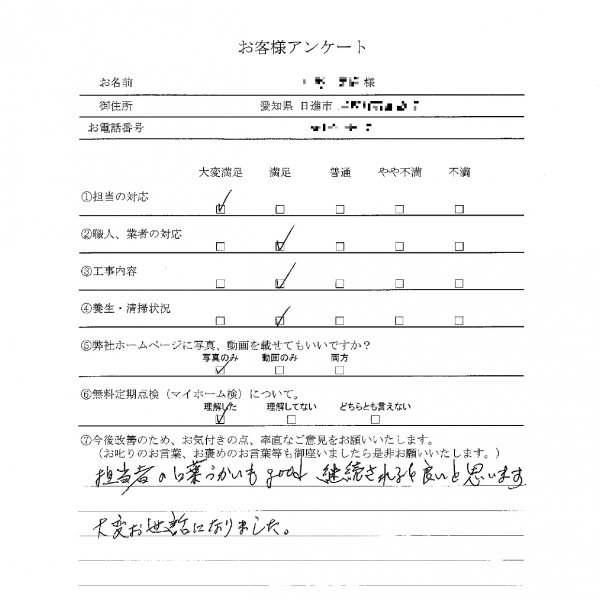 お客様アンケート
お名前 様
御住所 愛知県 日進市
お電話番号
大変満足 満足 普通 やや不満 不満
①担当の対応
②職人、業者の対応
③工事内容
④養生・清掃状況
⑤弊社ホームページに写真、動画を載せてもいいですか？
写真のみ 動画のみ 両方
⑥無料定期点検（マイホーム検）について。
理解した 理解してない どちらとも言えない
⑦今後改善のため、お気付きの点、率直なご意見をお願いいたします。
（お叱りのお言葉、お褒めのお言葉等も御座いましたら是非お願いいたします。）
担当者の言葉づかいも good 継続されると良いと思います
大変お世話になりました。